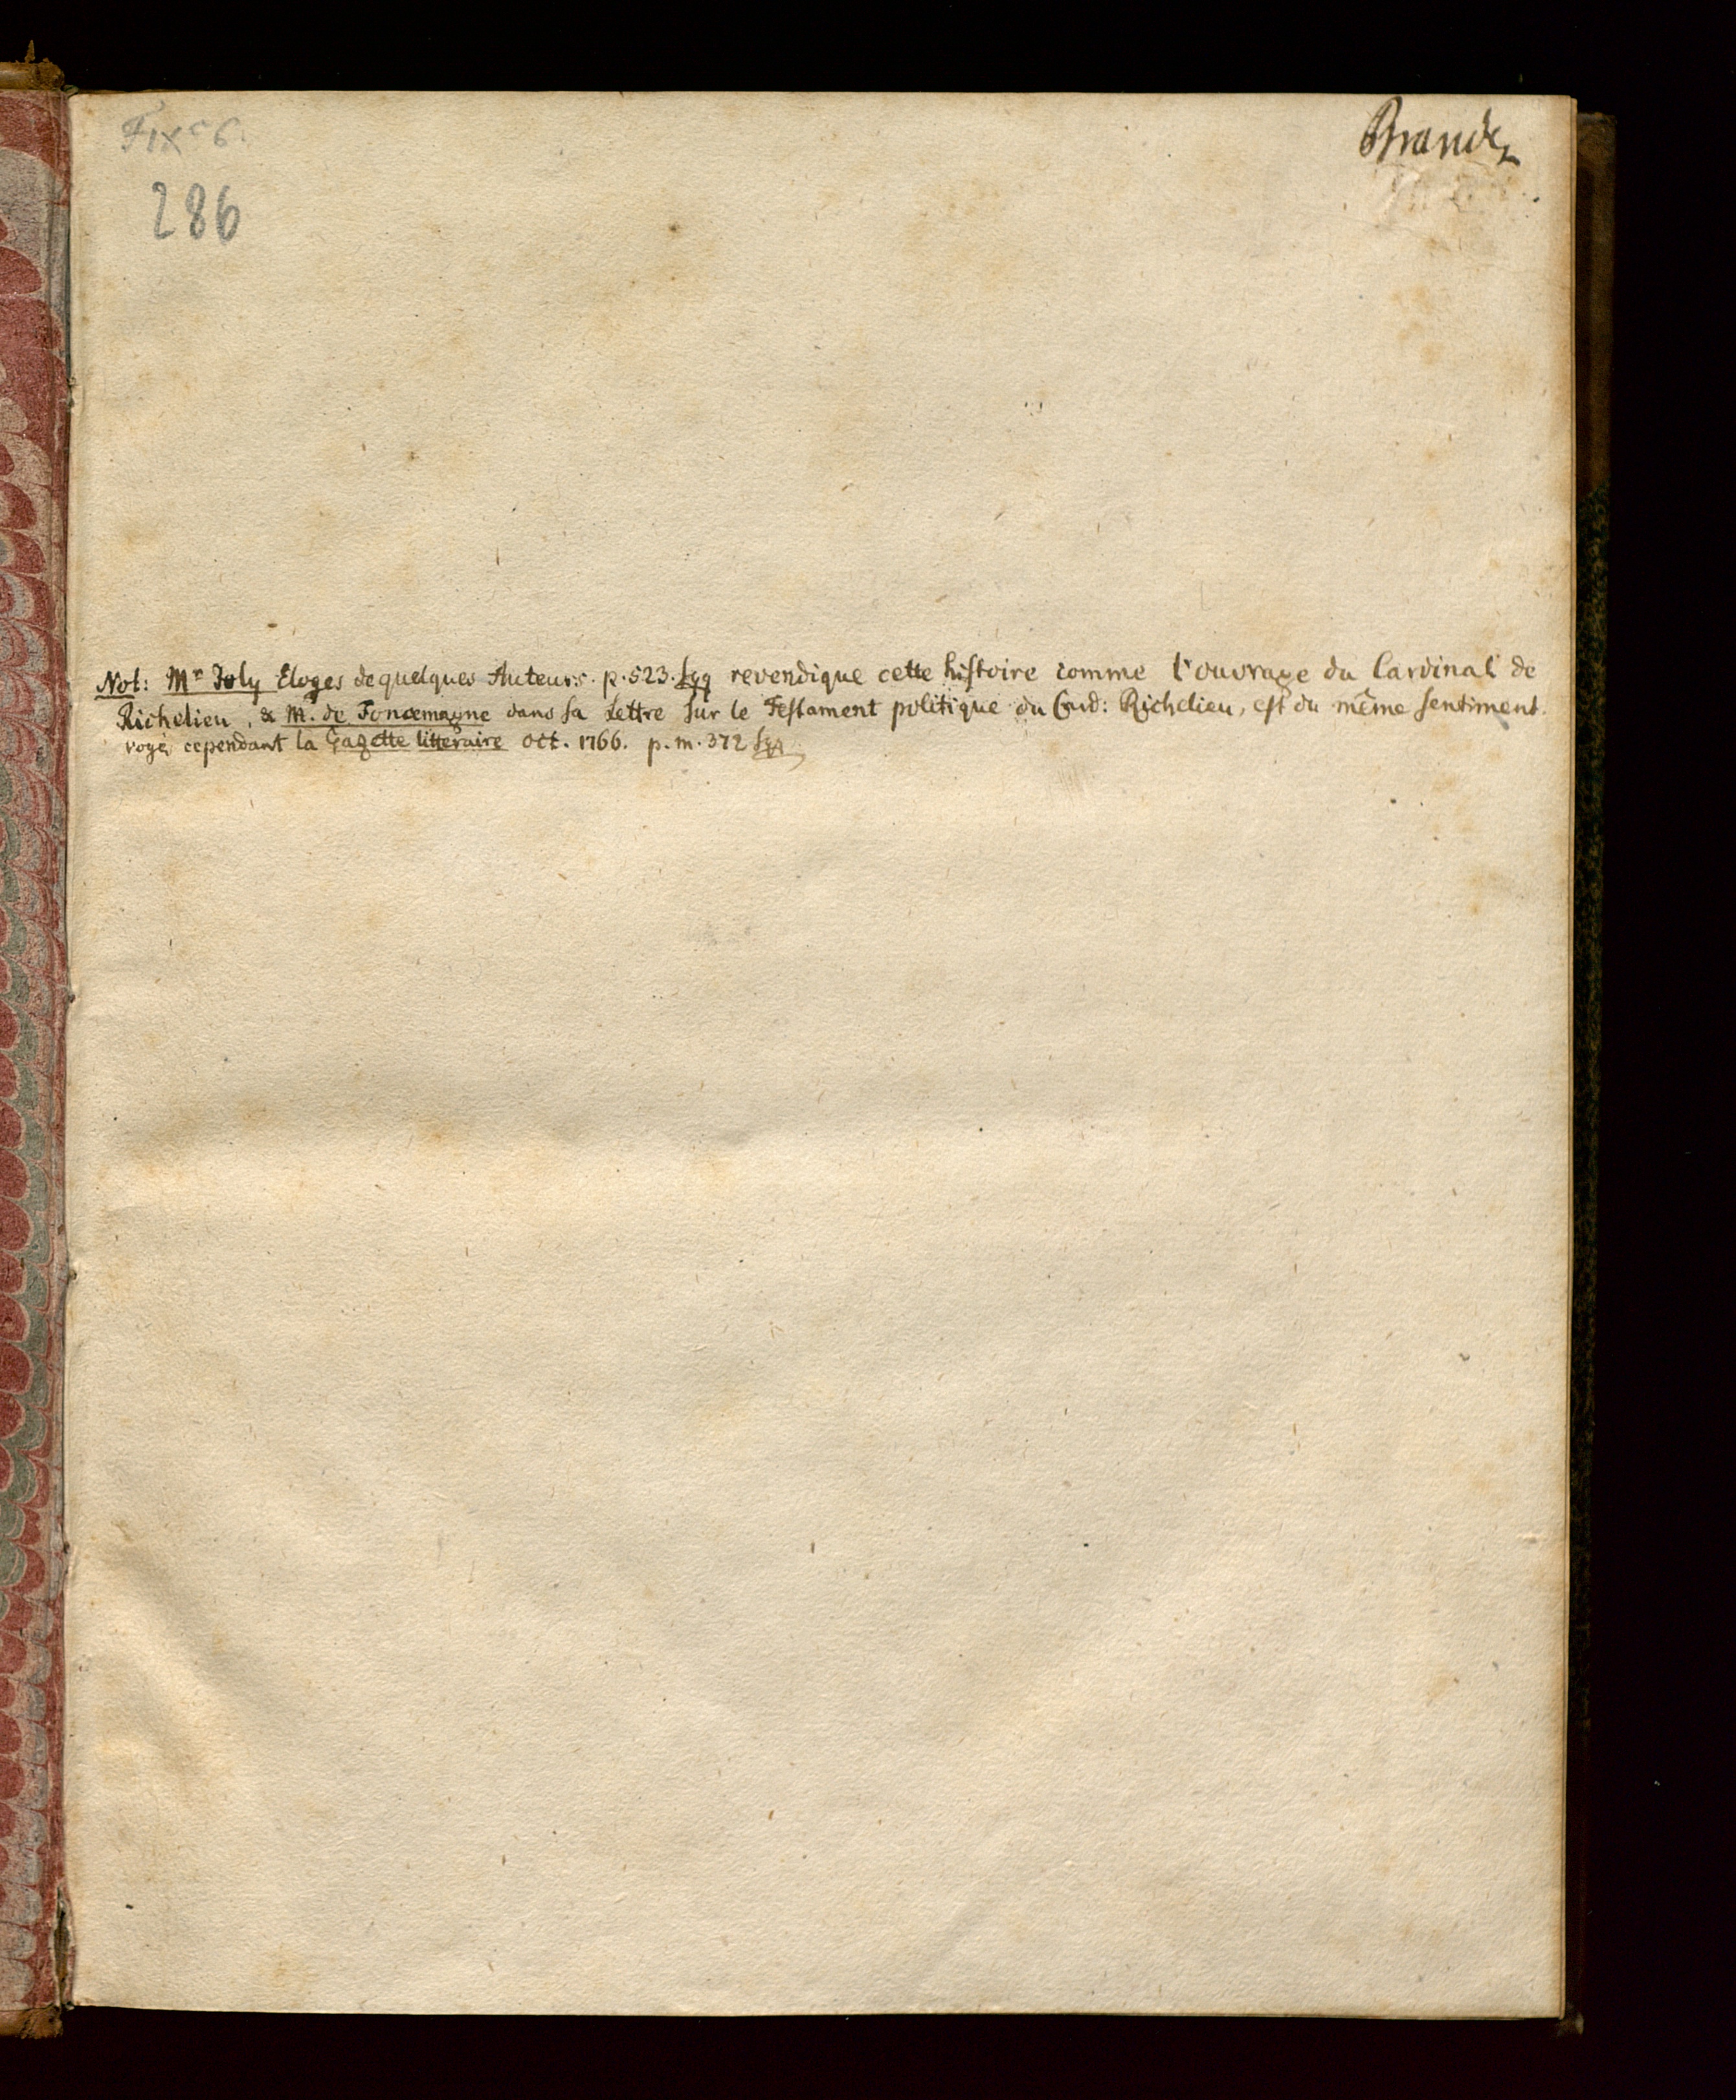 286
Brandes
Not: Mr Joly Eloges de quelques Auteurs. p. 523. sqq revendique cette histoire comme l'ouvrage du Cardinal de
Richelieu, & M. de Foncemagne dans sa Lettre sur le Testament politique du Card: Richelieu, est du même sentiment.
voyé cependant la Gazette litteraire Oct. 1766. p. m. 372 sqq